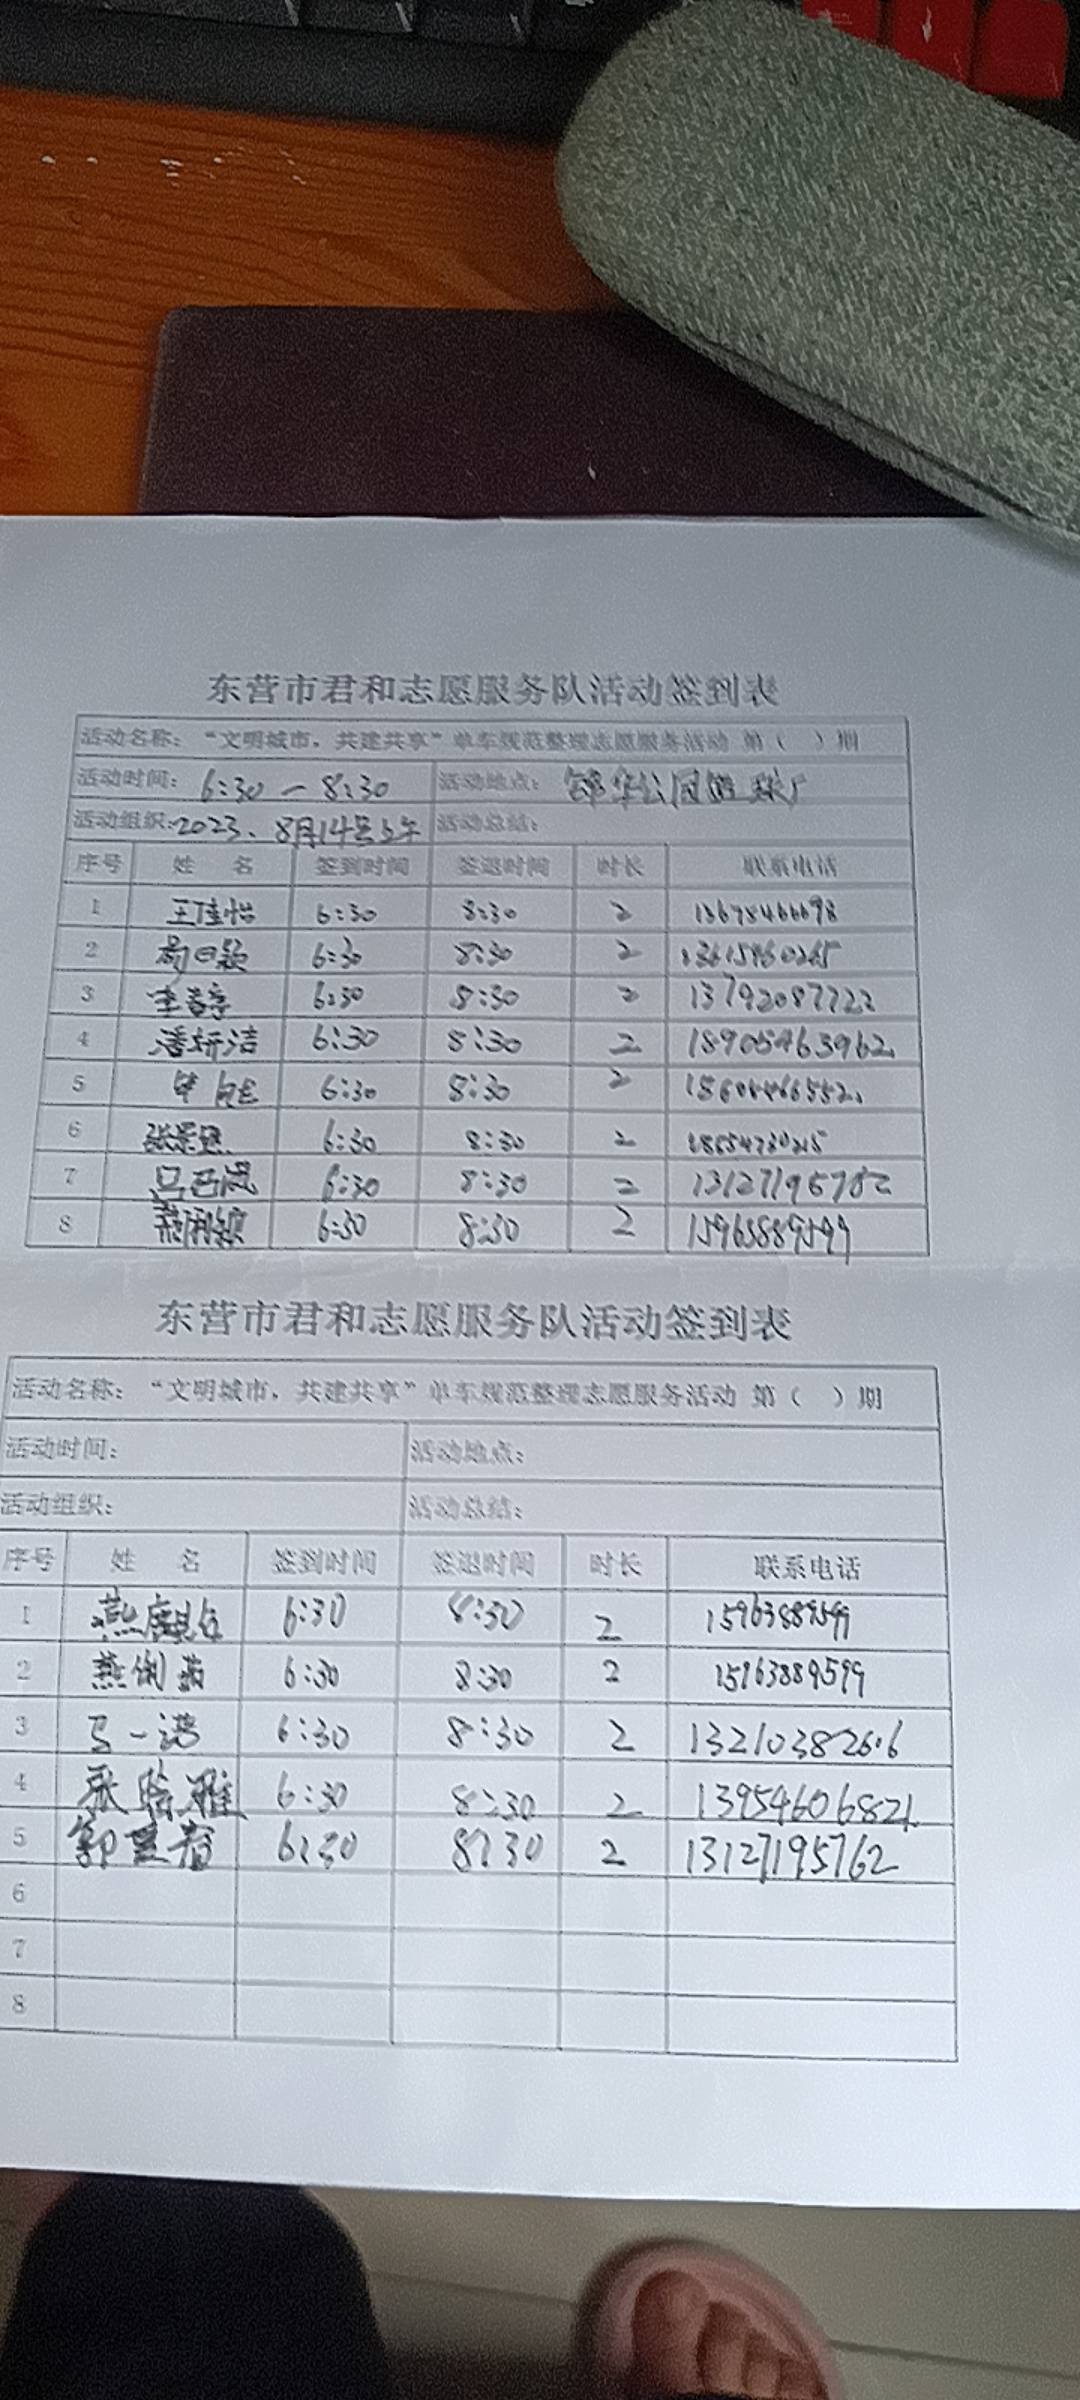 东营市君和志愿服务队活动签到表
活动名称：“文明城市，共建共享”单车规范整理志愿服务活动 第（ ）期
活动时间： 6:30 — 8:30 活动地点： 锦华公园
活动组织：2023、8月14号上午 活动总结：
序号 姓 名 签到时间 签退时间 时长 联系电话
1 王佳怡 6:30 8:30 2
2 6:30 8:30 2
3 6:30 8:30 2 13792087222
4 潘妍洁 6:30 8:30 2 18905463962
5 6:30 8:30 2
6 6:30 8:30 2
7 6:30 8:30 2
8 6:30 8:30 2 15963889599
东营市君和志愿服务队活动签到表
活动名称：“文明城市，共建共享”单车规范整理志愿服务活动 第（ ）期
活动时间： 活动地点：
活动组织： 活动总结：
序号 姓 名 签到时间 签退时间 时长 联系电话
1 6:30 8:30 2 15963889599
2 6:30 8:30 2 15963889599
3 马一 6:30 8:30 2 13210382606
4 6:30 8:30 2 13954606821
5 6:30 8:30 2 13127195762
6
7
8